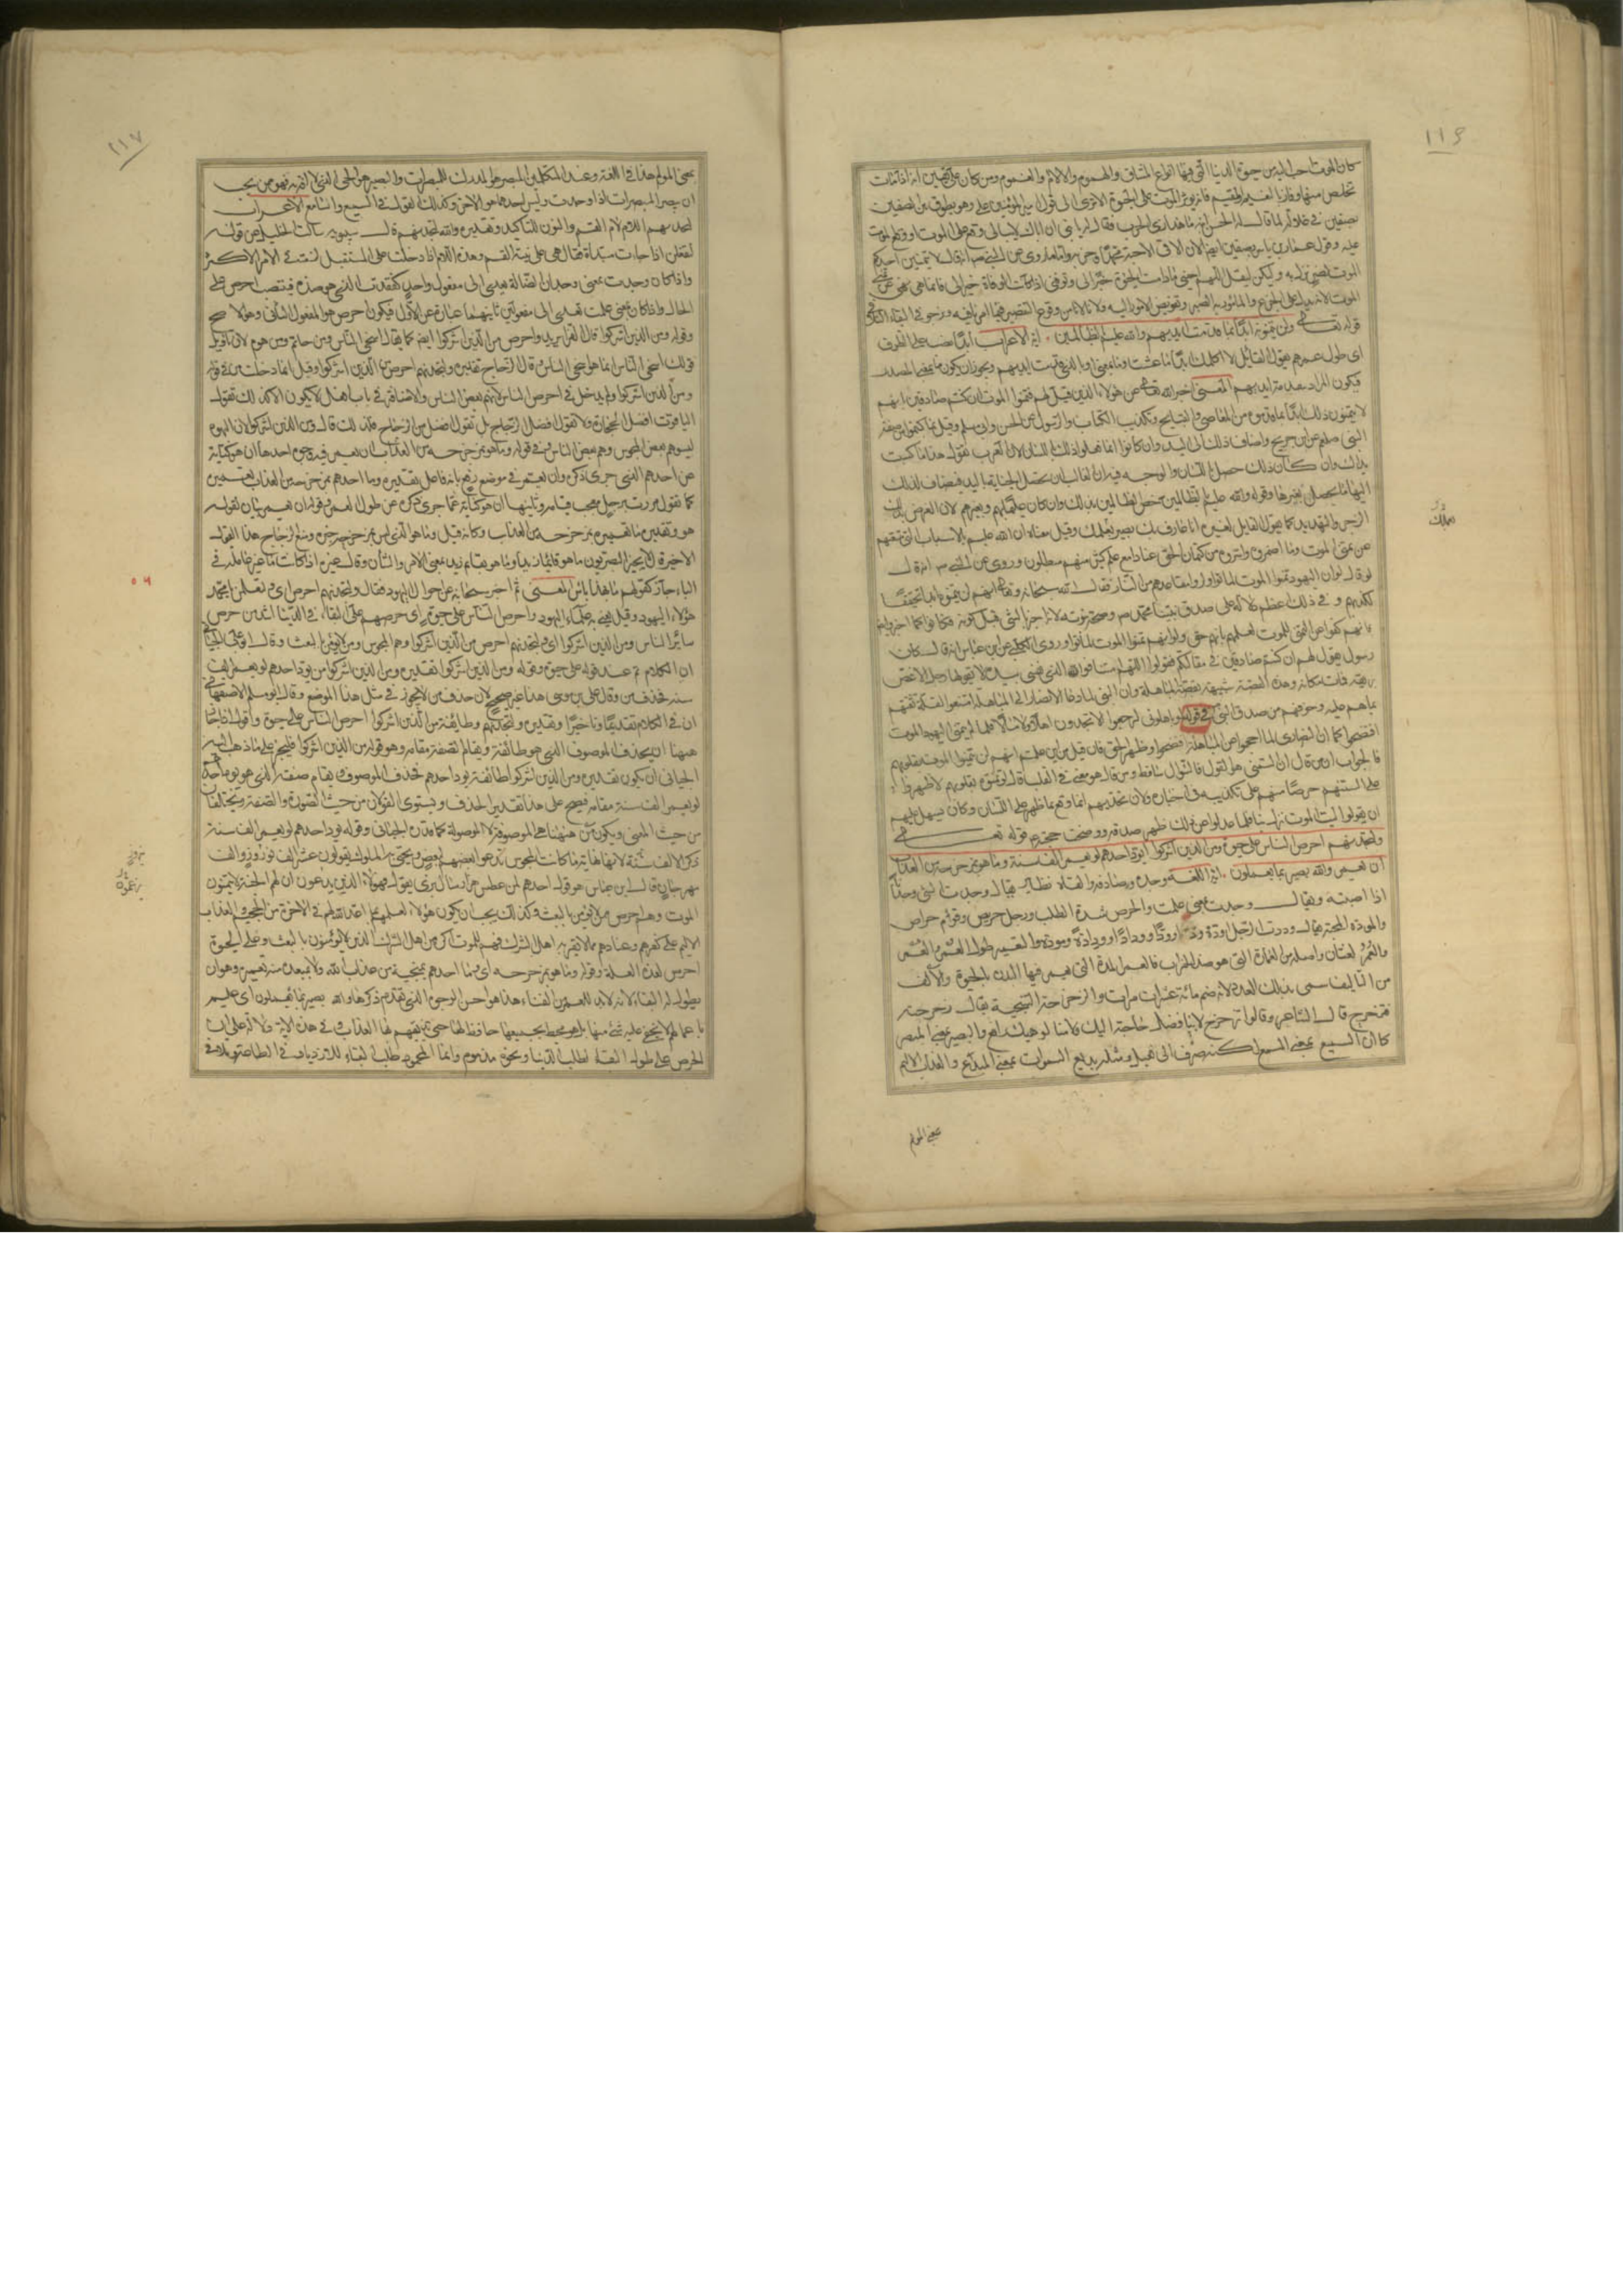 ١١٦
كان الموت احب اليه من حيوة الدنيا التي فيها انواع المشاق والهموم والالام والغموم ومن كان على يقين انه اذا مات
تخلص منها وفاز بالنعيم المقيم فانه يوثر الموت على الحيوة الا ترى الى قول امير المؤمنين علي وهو يطوف بين الصفين
بصفين في غلالة لما قال له الحسن ابنه ما هذا زي الحرب فقال له يا بني ان اباك لا يبالي وقع على الموت او وقع الموت
عليه وقول عمار بن ياسر بصفين ايضا الان الاقي الاحبة محمدا وحزبه واما ما روي عن النبي ص انه قال لا يتمنين احدكم
الموت لضر نزل به ولكن ليقل اللهم احيني ما دامت الحيوة خيرا لي وتوفني اذا كانت الوفاة خيرا لي فانما هي نهي عن تمني
الموت لانه يدل على الجزع والمأمور به الصبر وتفويض الامور اليه ولانا لا نامن وقوع التقصير فيما امرنا به ونرجو في البقاء التلافي
قوله تعالى ولن يتمنوه ابدا بما قدمت ايديهم والله عليم بالظالمين اية الاعراب ابدا نصب على الظرف
اي طول عمرهم يقول القائل لا اكلمك ابدا ما عشت وما بمعنى اي بالذي قدمت ايديهم ويجوز ان يكون ما بمعنى المصدر
فيكون المراد بتقدمة ايديهم المعنى اخبر الله تعالى عن هؤلاء الذين قيل لهم فتمنوا الموت ان كنتم صادقين بانهم
لا يتمنون ذلك ابدا بما قدموه من المعاصي والقبايح وتكذيب الكتاب والرسول عن الحسن وابي مسلم وقيل بما كتموا من صفة
النبي صلعم عن ابن جريج واضاف ذلك الى اليد وان كانوا انما فعلوا ذلك باللسان لان العرب تقول هذا ما كسبت
يداك وان كان ذلك حصل باللسان والوجه فيه ان الغالب ان تحصل الجناية باليد فيضاف بذلك
اليها ما يحصل بغيرها وقوله والله عليم بالظالمين خص الظالمين بذلك وان كان عليما بهم وبغيرهم لان الغرض بذلك
الزجر والتهديد كما يقول القايل لغيره انا عارف بك بصير بعملك وقيل معناه ان الله عليم بالاسباب التي منعتهم
عن تمني الموت وبما اضمروه واسروه من كتمان الحق عنادا مع علم كثير منهم مبطلون وروي عن النبي ص انه قال
لو قال لو ان اليهود تمنوا الموت لماتوا ولراوا مقاعدهم من النار فقال الله سبحانه وتعالى انهم لن يتمنوه ابدا تحقيقا
لكذبهم وفي ذلك اعظم دلالة على صدق نبينا محمد ص وصحة نبوته لانه اخبر بالشيء قبل كونه فكان كما اخبر وايضا
فانهم كفوا عن التمني للموت لعلمهم بانه حق وانهم لو تمنوا الموت لماتوا وروى الكلبي عن ابن عباس انه قال كان
رسول يقول لهم ان كنتم صادقين في مقالتكم فقولوا اللهم امتنا فوالله الذي نفسي بيده لا يقولها رجل الا غص
بريقه فمات مكانه وهذه القصة شبيهة بقصة المباهلة وان النبي لما دعا الانصار الى المباهلة امتنعوا لقلة ثقتهم
بما هم عليه وخوفهم من صدق النبي في قوله لو باهلوني لرجعوا لا يجدون اهلا ولا مالا فلما لم يتمن اليهود الموت
افتضحوا كما ان النصارى لما احجموا عن المباهلة افتضحوا وظهر الحق فان قيل من اين علمتم انهم لن يتمنوا الموت بقلوبهم
فالجواب ان من قال ان التمني هو القول فالسؤال ساقط ومن قال هو معنى في القلب قال لو تمنوه بقلوبهم لاظهروه
على السنتهم حرصا منهم على تكذيبه في اخباره ولان تحديهم انما وقع بما ظهر على اللسان وكان يسهل عليهم
ان يقولوا ليت الموت نزل بنا فلما عدلوا عن ذلك ظهر صدقه ووضحت حجته قوله تعالى
ولتجدنهم احرص الناس على حيوة ومن الذين اشركوا يود احدهم لو يعمر الف سنة وما هو بمزحزحه من العذاب
ان يعمر والله بصير بما يعملون اية اللغة وجده وصادفه والفاه نظاير يقال وجدت الشيء وجدانا
اذا اصبته ويقال وجدت بمعنى علمت والحرص شدة الطلب ورجل حريص وقوم حراص
والمودة المحبة يقال وددت الرجل اوده ودا وودا وودادا وودادة ومودة والتعمير طول العمر والعمر
والعمر لغتان واصله من العمارة التي هو ضد الخراب فالعمر المدة التي يعمر فيها البدن بالحيوة والالف
من التاليف سمي بذلك العدد لانه ضم مائة عشر مرات والزحزحة التنحية يقال زحزحته
فتزحزح قال الشاعر وقالوا تزحزح لا بنا فضل حاجة اليك ولا منا لوهيك راقع والبصير بمعنى المبصر
كما ان السميع بمعنى المسمع لكنه صرف الى فعيل ومثله بديع السموات بمعنى المبدع والعذاب الاليم
بمعنى المولم
١١٧
بمعنى المولم هذا في اللغة وعند المتكلمين المبصر هو المدرك للمبصرات والبصير هو الحي الذي لا افة به فهو من يجب
ان يبصر المبصرات اذا وجدت وليس احدهما هو الاخر وكذلك القول في السميع والسامع الاعراب
لتجدنهم اللام لام القسم والنون للتاكيد وتقديره والله لتجدنهم قال سيبويه سالت الخليل عن قوله
لتفعلن اذا جاءت مبتداة فقال هي على نية القسم وهذه اللام اذا دخلت على المستقبل لزمته في الامر الاكثر
واذا كان وجدت بمعنى وجدان الضالة يعدى الى مفعول واحد كفقدت الذي هو ضده فينتصب احرص على
الحال واذا كان بمعنى علمت تعدى الى مفعولين ثانيهما عبارة عن الاول فيكون احرص هو المفعول الثاني وهو الاصح
وقوله ومن الذين اشركوا قال الفراء يريد واحرص من الذين اشركوا ايضا كما يقال اسخى الناس ومن حاتم ومن هرم لان تاويل
قولك اسخى الناس انما هو اسخى من الناس وقال الزجاج تقديره ولتجدنهم احرص من الذين اشركوا وقيل انما دخلت من في قوله
ومن الذين اشركوا ولم يدخل في احرص الناس لانهم بعض الناس والاضافة في باب افعل لا يكون الا كذلك تقول
الياقوت افضل الحجارة ولا تقول افضل الزجاج بل تقول افضل من الزجاج فلذلك قال ومن الذين اشركوا لان اليهود
ليسوهم بعض المجوس وهم بعض الناس وفي قوله وما هو بمزحزحه من العذاب ان يعمر فيه وجوه احدها انه كناية
عن احدهم الذي جرى ذكره وان يعمر في موضع رفع بانه فاعل تقديره وما احدهم بمزحزحه من العذاب تعميره
كما تقول مررت برجل معجب قيامه وثانيها انه كناية عما جرى ذكره من طول العمر وقوله ان يعمر بيان لقوله
هو وتقديره ما تعميره بمزحزحه من العذاب وكانه قيل وما هو الذي ليس بمزحزحه ومنع الزجاج هذا القول
الاخير قال لا يجيز البصريون ما هو قائما زيد وما هو بقائم زيد بمعنى الامر والشان وقال غيره اذا كانت ما غير عاملة في
الباء جاز كقولهم ما بهذا باس المعنى ثم اخبر سبحانه عن احوال اليهود فقال ولتجدنهم احرص اي ولتعلمن يا محمد
هؤلاء اليهود وقيل يعني به علماء اليهود واحرص الناس على حيوة اي حرصهم على البقاء في الدنيا اشد من حرص
سائر الناس ومن الذين اشركوا اي ولتجدنهم احرص من الذين اشركوا وهم المجوس ومن لا يؤمن بالبعث وقال ابو علي الجبائي
ان الكلام تم عند قوله على حيوة وقوله ومن الذين اشركوا تقديره ومن الذين اشركوا من يود احدهم لو يعمر الف
سنة فحذف من وقال علي بن عيسى هذا غير صحيح لان حذف من لا يجوز في مثل هذا الموضع وقال ابو مسلم الاصفهاني
ان في الكلام تقديما وتاخيرا وتقديره ولتجدنهم وطائفة من الذين اشركوا احرص الناس على حيوة واقول اذا جاز
هيهنا ان يحذف الموصوف الذي هو طائفة ويقام الصفة مقامه وهو قوله من الذين اشركوا فليجز على ما ذهب اليه
الجبائي ان يكون تقديره ومن الذين اشركوا طائفة يود احدهم فحذف الموصوف ويقام صفته الذي هو يود احدهم
لو يعمر الف سنة مقامه فيصح على هذا تقدير الحذف ويستوي القولان من حيث الصورة والصفة ويختلفان
من حيث المعنى ويكون من هيهنا هي الموصوفة لا الموصولة كما قدره الجبائي وقوله يود احدهم لو يعمر الف سنة
ذكر الالف سنة لانها نهاية ما كانت المجوس تدعو لبعضهم لبعض وتحيي به الملوك يقولون عش الف نوروز والف
مهرجان قال ابن عباس هو قول احدهم لمن عطس هزار سال بزي يقول فهؤلاء الذين يدعون ان لهم الجنة لا يتمنون
الموت وهم احرص ممن لا يؤمن بالبعث وكذلك يجب ان يكون هؤلاء لعلمهم بما اعد الله لهم في الاخرة من الجحيم والعذاب
الاليم على كفرهم وعنادهم مما لا يقر به اهل الشرك فهم للموت اكره من اهل الشرك الذين لا يؤمنون بالبعث وعلى الحيوة
احرص لهذه العلة وقوله وما هو بمزحزحه اي وما احدهم بمنجيه من عذاب الله ولا بمبعده منه تعميره وهو ان
يطول له البقاء لانه لا بد للعمر من الفناء هذا هو احسن الوجوه الذي تقدم ذكرها والله بصير بما يعملون اي عليم
باعمالهم لا يخفى عليه شيء منها بل هو محيط بجميعها حافظ لها حتى يذيقهم لها العذاب وفي هذه الاية دلالة على ان
الحرص على طول البقاء لطلب الدنيا ونحوه مذموم وانما المحمود طلب البقاء للازدياد في الطاعة وتلافي